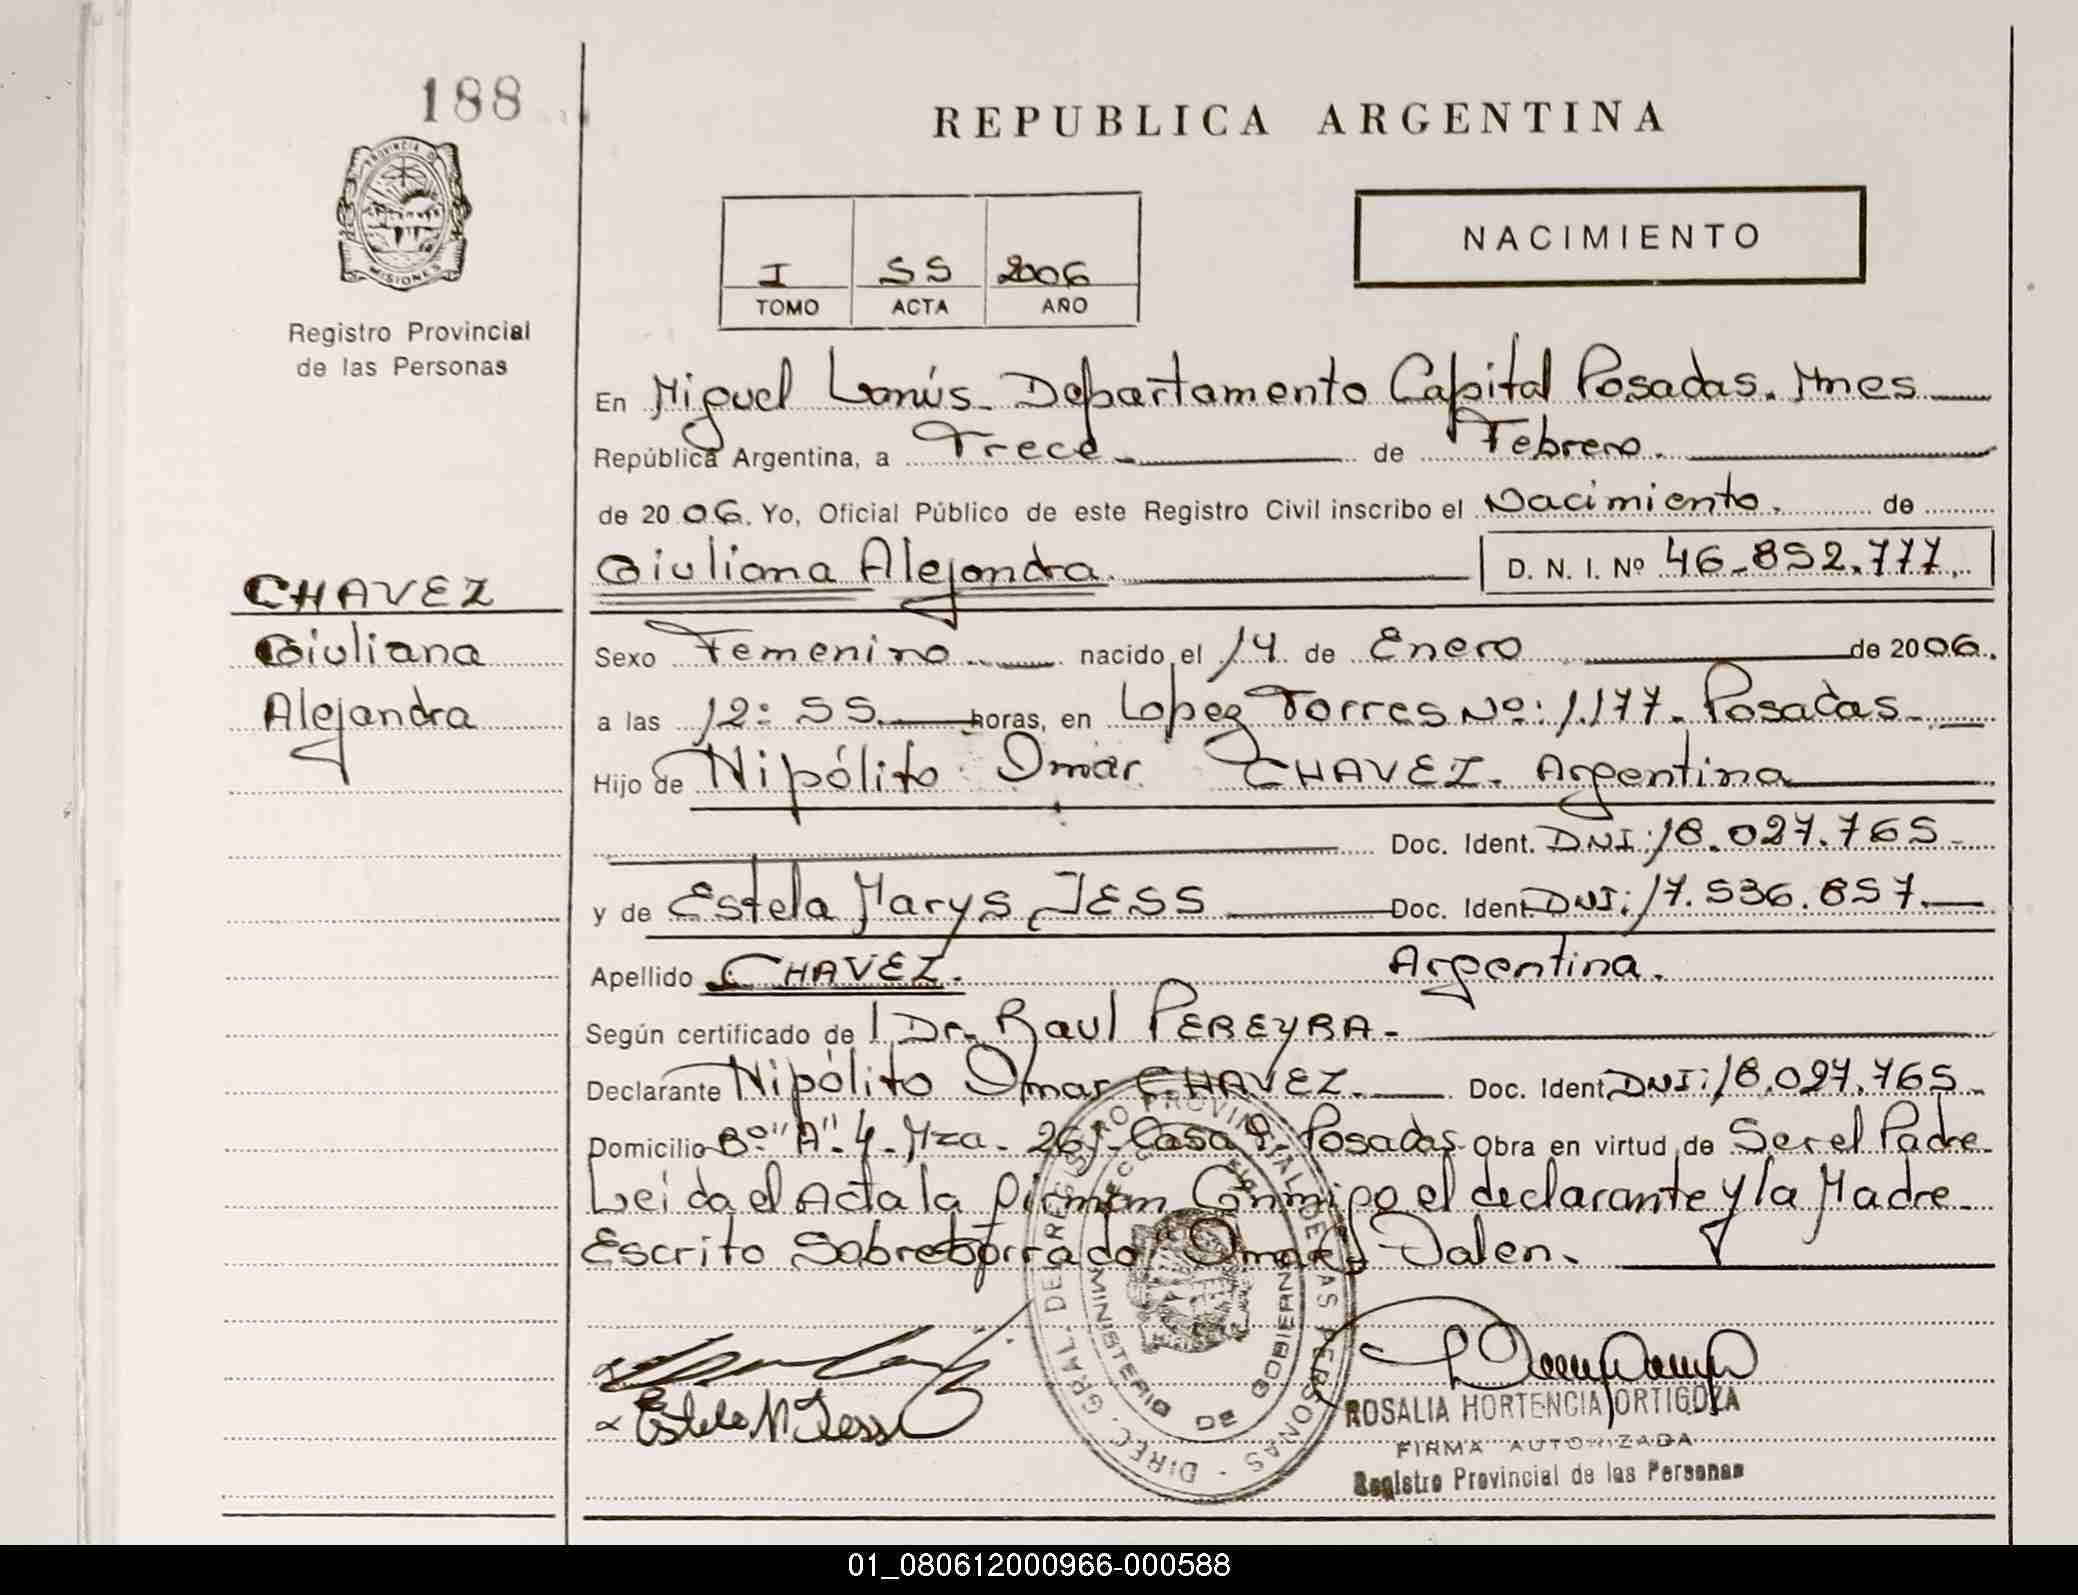 188
PROVINCIA D
MISIONES
Registro Provincial
de las Personas
REPUBLICA ARGENTINA
I 55 2006
TOMO ACTA AÑO
NACIMIENTO
En Miguel Lanús - Departamento Capital Posadas. Mnes
República Argentina, a Trece de Febrero.
de 2006. Yo, Oficial Público de este Registro Civil inscribo el Nacimiento. de
Giuliana Alejandra. D. N. I. Nº 46-852.777.
CHAVEZ
Giuliana
Alejandra
Sexo Femenino nacido el 14 de Enero de 2006.
a las 12:55 horas, en Lopez Torres Nº: 1.177- Posadas-
Hijo de Hipólito Omar CHAVEZ. Argentina
Doc. Ident. DNI: 18.027.765-
y de Estela Marys JESS Doc. Ident. DNI: 17.536.857.
Apellido CHAVEZ. Argentina.
Según certificado de l Dr. Raul PEREYRA-
Declarante Hipólito Omar CHAVEZ. Doc. Ident. DNI: 18.027.765-
Domicilio Bº "A"-4-Mza- 26- Casa Posadas Obra en virtud de Ser el Padre-
Leida el Acta la firman Conmigo el declarante y la Madre-
Escrito Sobreborrado "Omar" Valen.
Estela M Jess
DIREC. GRAL. DEL REGISTRO PROVINCIAL DE LAS PERSONAS
MINISTERIO DE GOBIERNO
ROSALIA HORTENCIA ORTIGOZA
FIRMA AUTORIZADA
Registro Provincial de las Personas
01_080612000966-000588